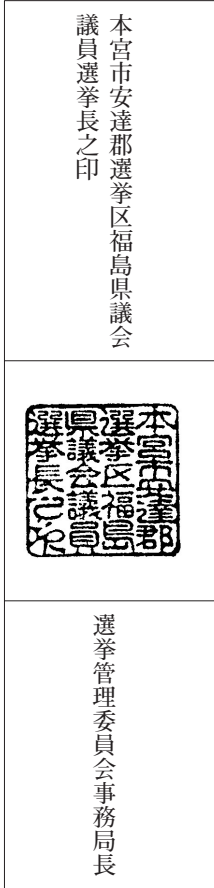 本宮市安達郡選挙区福島県議会
議員選挙長之印
本宮市安達郡
選挙区福島
県議会議員
選挙長之印
選挙管理委員会事務局長